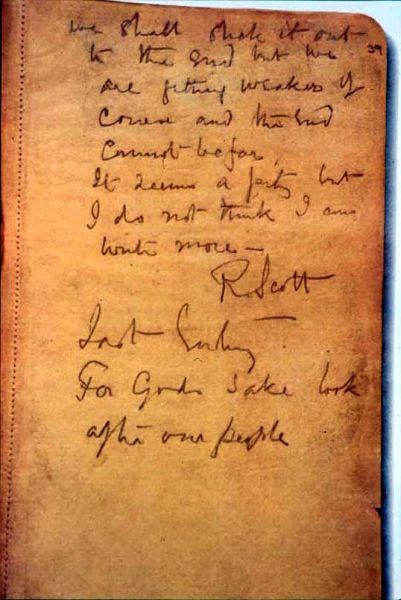 we shall stick it out
to the end but we 39
are getting weaker of
course and the end
cannot be far.
It seems a pity but
I do not think I can
write more —
R. Scott
Last Entry
For Gods sake look
after our people